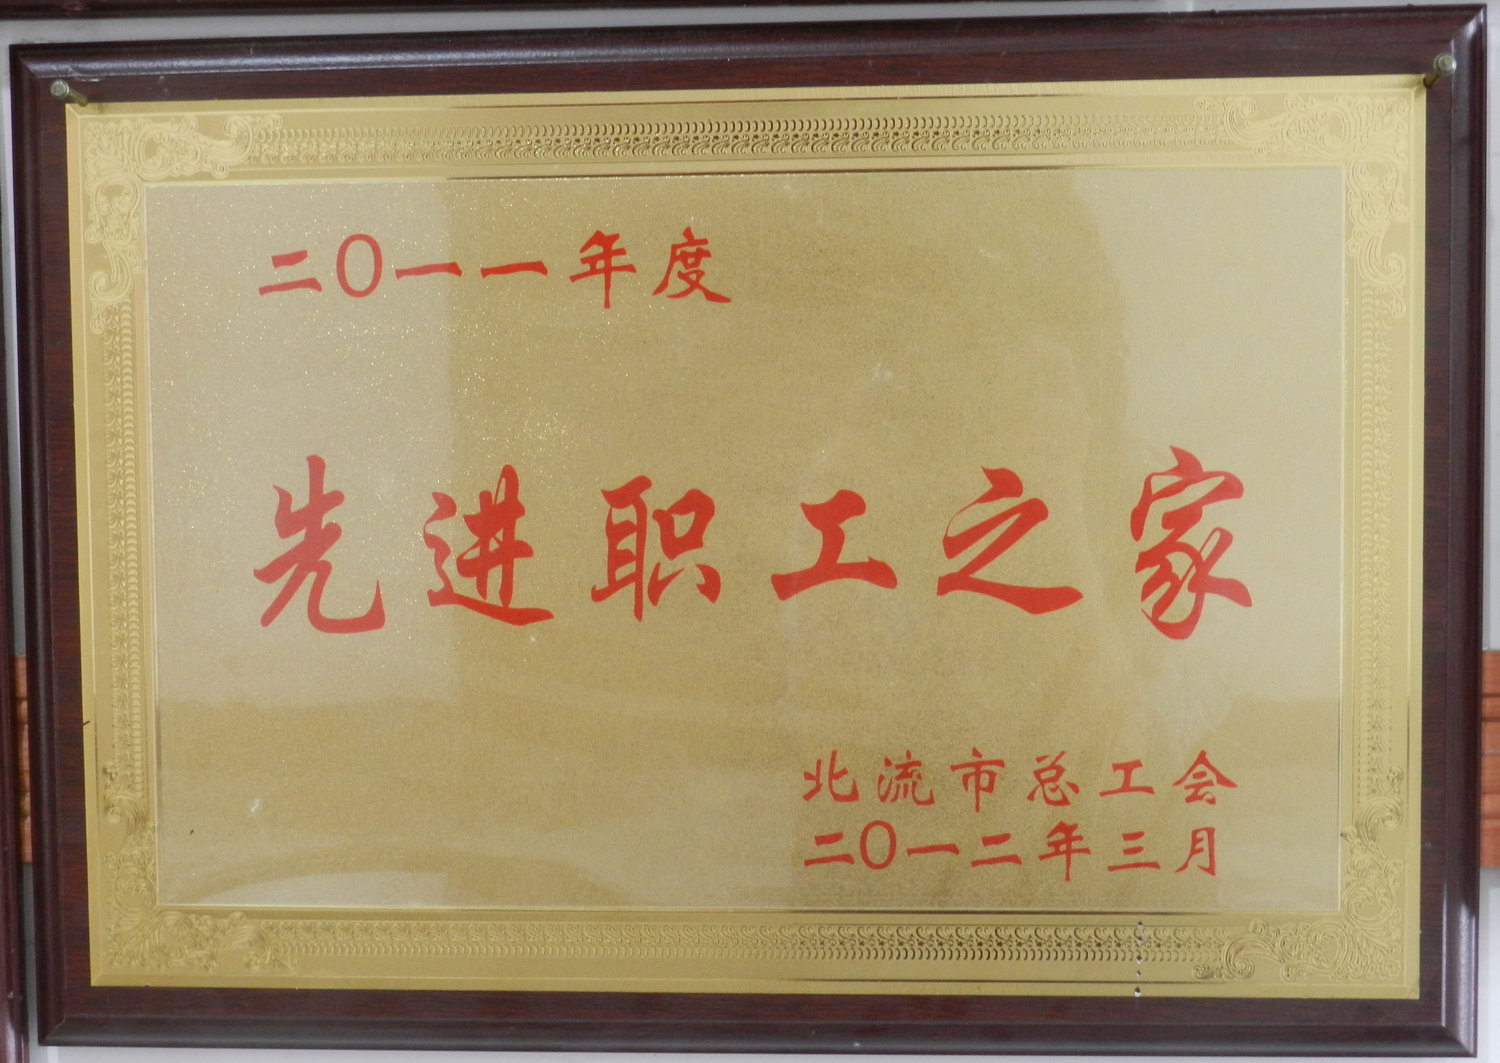 二〇一一年度
先进职工之家
北流市总工会
二〇一二年三月